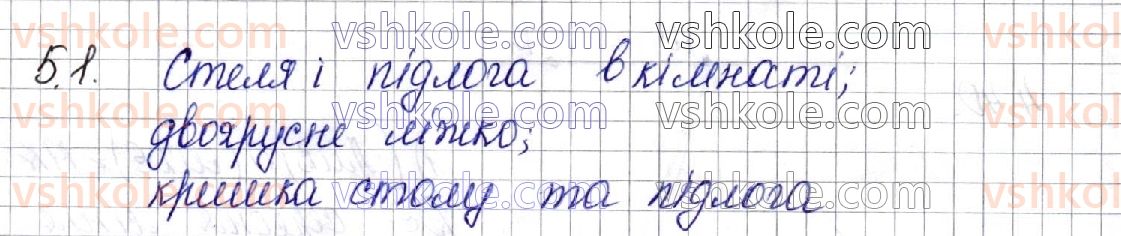 vshkole.com vshkole.com vshkole.com vshkole.com
5.1. Стеля і підлога в кімнаті;
vshkole.com vshkole.com vshkole.com vshkole.com
двоярусне ліжко;
vshkole.com vshkole.com vshkole.com vshkole.com
кришка столу та підлога